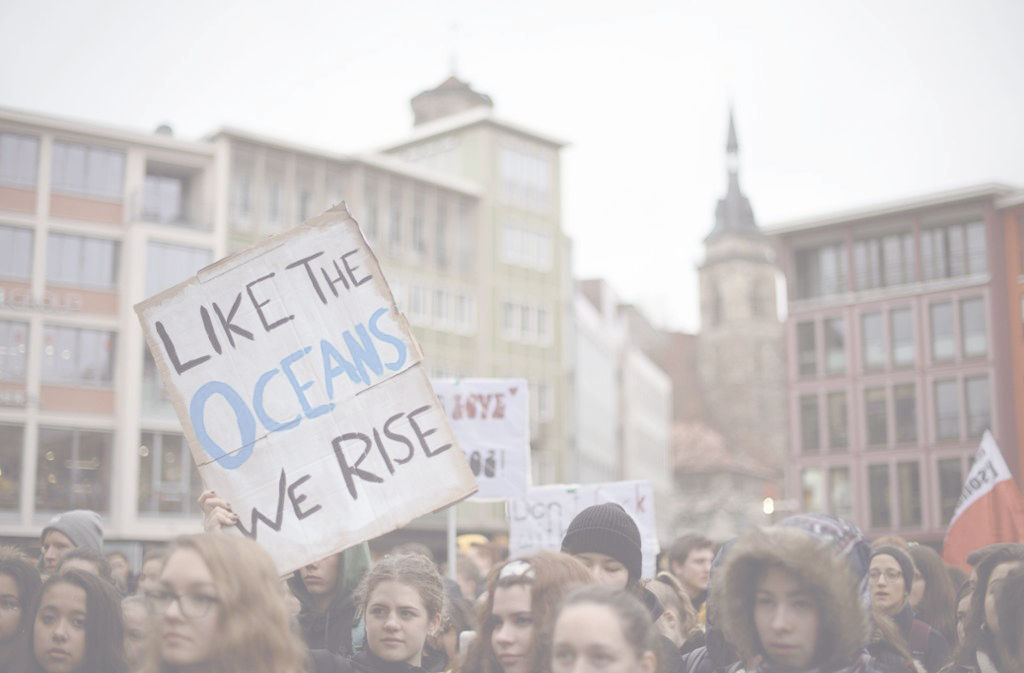 LIKE THE
OCEANS
WE RISE
LOVE